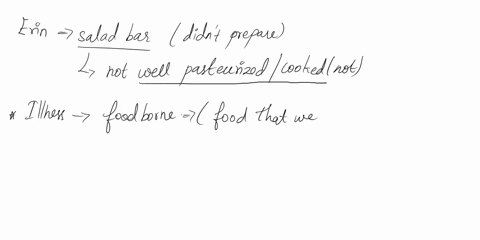 Erin → salad bar (didn't prepare)
↳ not well pasteurized/cooked (not)
* Illness → foodborne → ( food that we